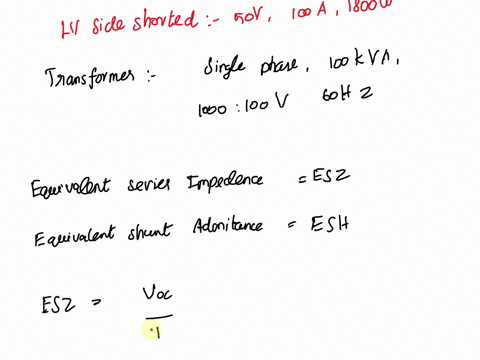 LV Side shorted :- 50V, 100A, 1800W
Transformer :- Single phase, 100kVA,
1000 : 100 V 60HZ
Equivalent series Impedence = ESZ
Equivalent shunt Admitance = ESH
ESZ = Voc